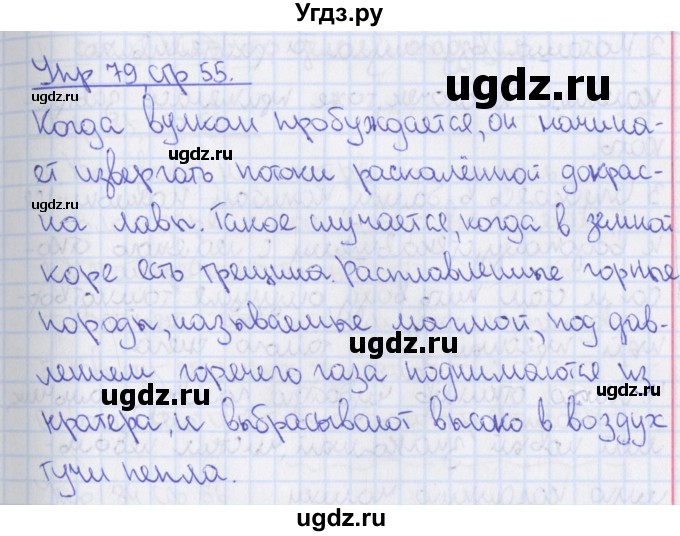 Угдз.ру
Упр 79, стр 55.
Когда вулкан пробуждается, он начина-
ет извергать потоки раскалённой докрас-
на лавы. Такое случается, когда в земной
коре есть трещина. Расплавленные горные
породы, называемые магмой, под дав-
лением горячего газа поднимаются из
кратера, и выбрасывают высоко в воздух
тучи пепла.
ugdz.ru
ugdz.ru
ugdz.ru
ugdz.ru
ugdz.ru
ugdz.ru
ugdz.ru
ugdz.ru
ugdz.ru